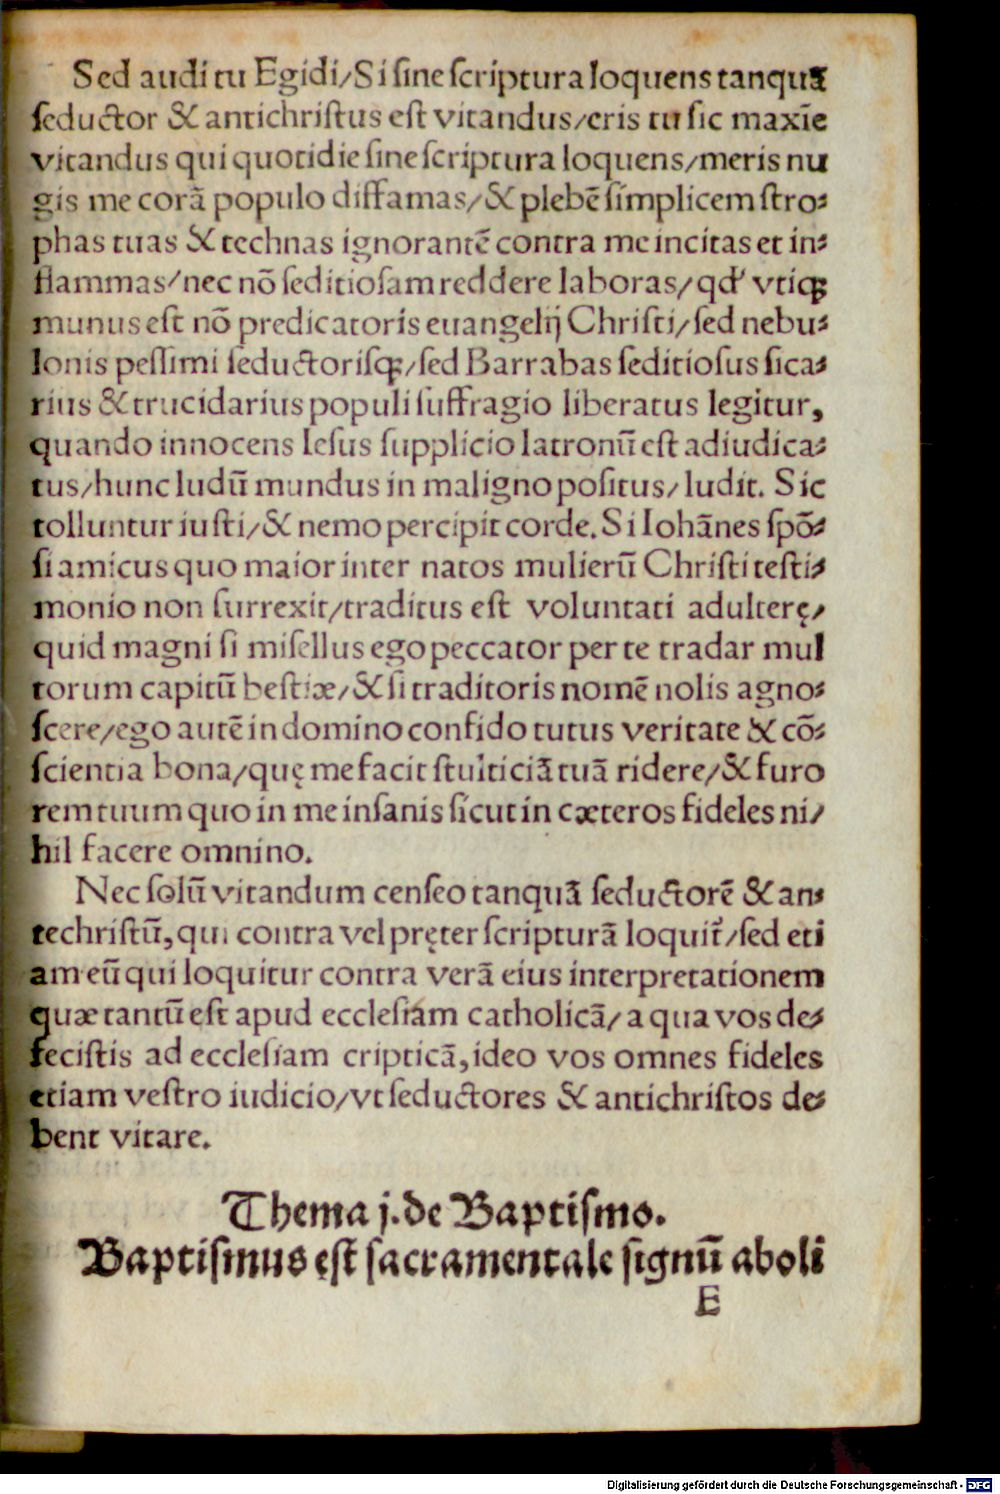 Sed audi tu Egidi/Si sine scriptura loquens tanquã
seductor & antichristus est vitandus/eris tu sic maxïe
vitandus qui quotidie sine scriptura loquens/meris nu
gis me corã populo diffamas/& plebẽ simplicem stro⸗
phas tuas & technas ignorantẽ contra me incitas et in⸗
flammas/nec nõ seditiosam reddere laboras/qđ vtiqꝫ
munus est nõ predicatoris euangelij Christi/sed nebu⸗
lonis pessimi seductorisqꝫ/sed Barrabas seditiosus sica⸗
rius & trucidarius populi suffragio liberatus legitur,
quando innocens Iesus supplicio latronũ est adiudica⸗
tus/hunc ludũ mundus in maligno positus/ludit. Sic
tolluntur iusti/& nemo percipit corde. Si Iohãnes spõ⸗
si amicus quo maior inter natos mulierũ Christi testi⸗
monio non surrexit/traditus est voluntati adulterę/
quid magni si misellus ego peccator per te tradar mul
torum capitũ bestiæ/& si traditoris nomẽ nolis agno⸗
scere/ego autẽ in domino confido tutus veritate & cõ⸗
scientia bona/quę me facit stulticiã tuã ridere/& furo
rem tuum quo in me insanis sicut in cæteros fideles ni/
hil facere omnino.
Nec solũ vitandum censeo tanquã seductorẽ & an⸗
techristũ, qui contra vel pręter scripturã loquit᷑/sed eti
am eũ qui loquitur contra verã eius interpretationem
quæ tantũ est apud ecclesiam catholicã/a qua vos de⸗
fecistis ad ecclesiam cripticã, ideo vos omnes fideles
etiam vestro iudicio/vt seductores & antichristos de⸗
bent vitare.
Thema j. de Baptismo.
Baptismus ęst sacramentale signũ aboli
E
Digitalisierung gefördert durch die Deutsche Forschungsgemeinschaft - DFG